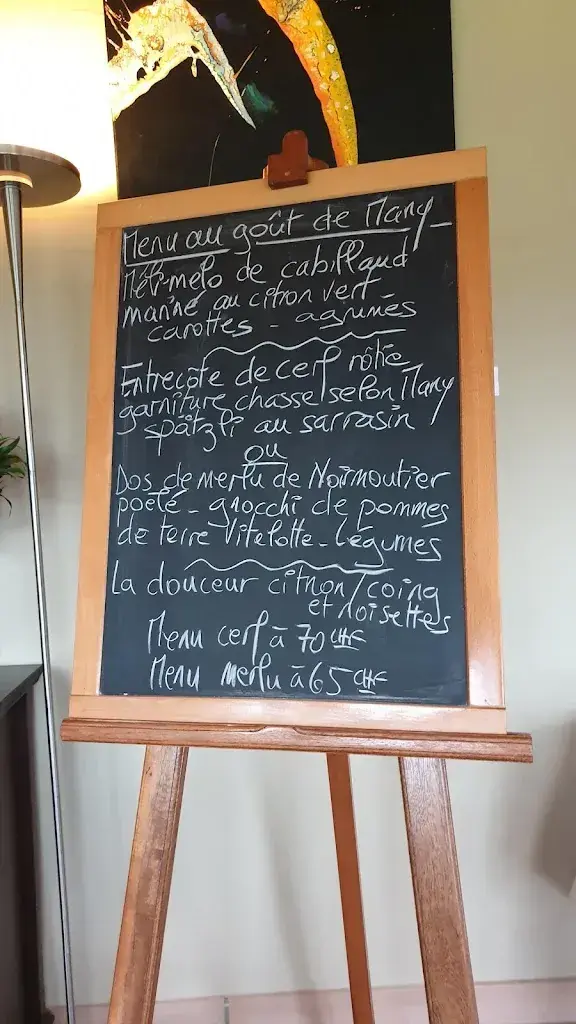 Menu au goût de Many
Méli-mélo de cabillaud
mariné au citron vert
carottes - agrumes
Entrecôte de cerf rôtie
garniture chasse selon Many
spätzli au sarrasin
ou
Dos de merlu de Noirmoutier
poêlé - gnocchi de pommes
de terre Vitelotte - légumes
La douceur citron/coing
et noisettes
Menu cerf à 70 CHF
Menu merlu à 65 CHF